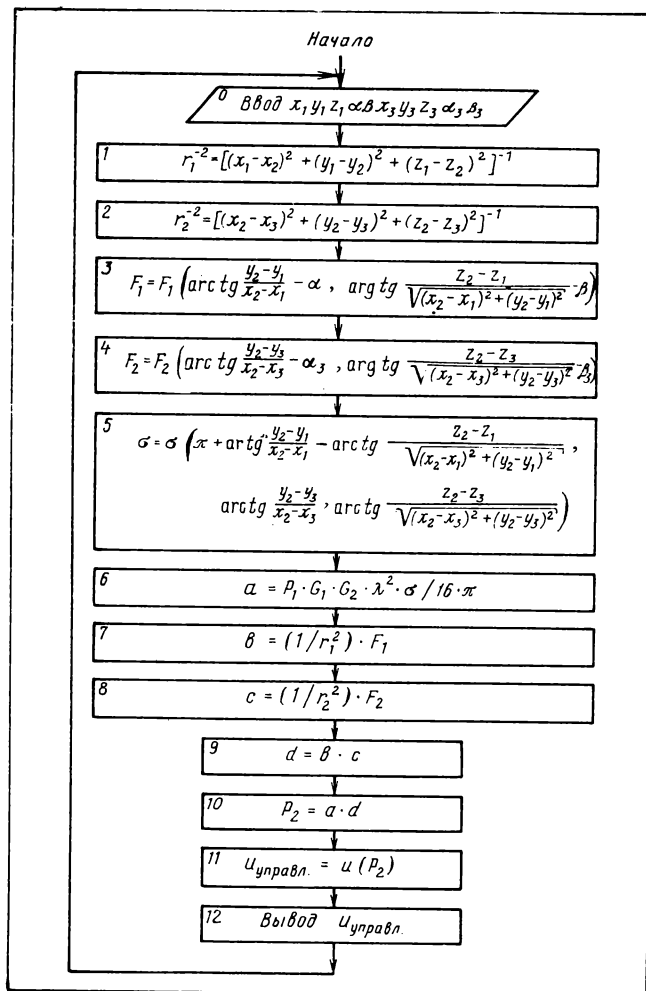 Начало
0 Ввод x₁ y₁ z₁ α β x₃ y₃ z₃ α₃ β₃
1 r₁⁻² = [(x₁-x₂)² + (y₁-y₂)² + (z₁-z₂)²]⁻¹
2 r₂⁻² = [(x₂-x₃)² + (y₂-y₃)² + (z₂-z₃)²]⁻¹
3 F₁ = F₁ (arctg (y₂-y₁)/(x₂-x₁) - α, argtg (z₂-z₁)/√((x₂-x₁)² + (y₂-y₁)²) - β)
4 F₂ = F₂ (arctg (y₂-y₃)/(x₂-x₃) - α₃, argtg (z₂-z₃)/√((x₂-x₃)² + (y₂-y₃)²) - β₃)
5 σ = σ (π + artg (y₂-y₁)/(x₂-x₁) - arctg (z₂-z₁)/√((x₂-x₁)² + (y₂-y₁)²),
arctg (y₂-y₃)/(x₂-x₃), arctg (z₂-z₃)/√((x₂-x₃)² + (y₂-y₃)²))
6 a = P₁ · G₁ · G₂ · λ² · σ / 16 · π
7 в = (1/r₁²) · F₁
8 c = (1/r₂²) · F₂
9 d = в · c
10 P₂ = a · d
11 uуправл. = u (P₂)
12 Вывод uуправл.